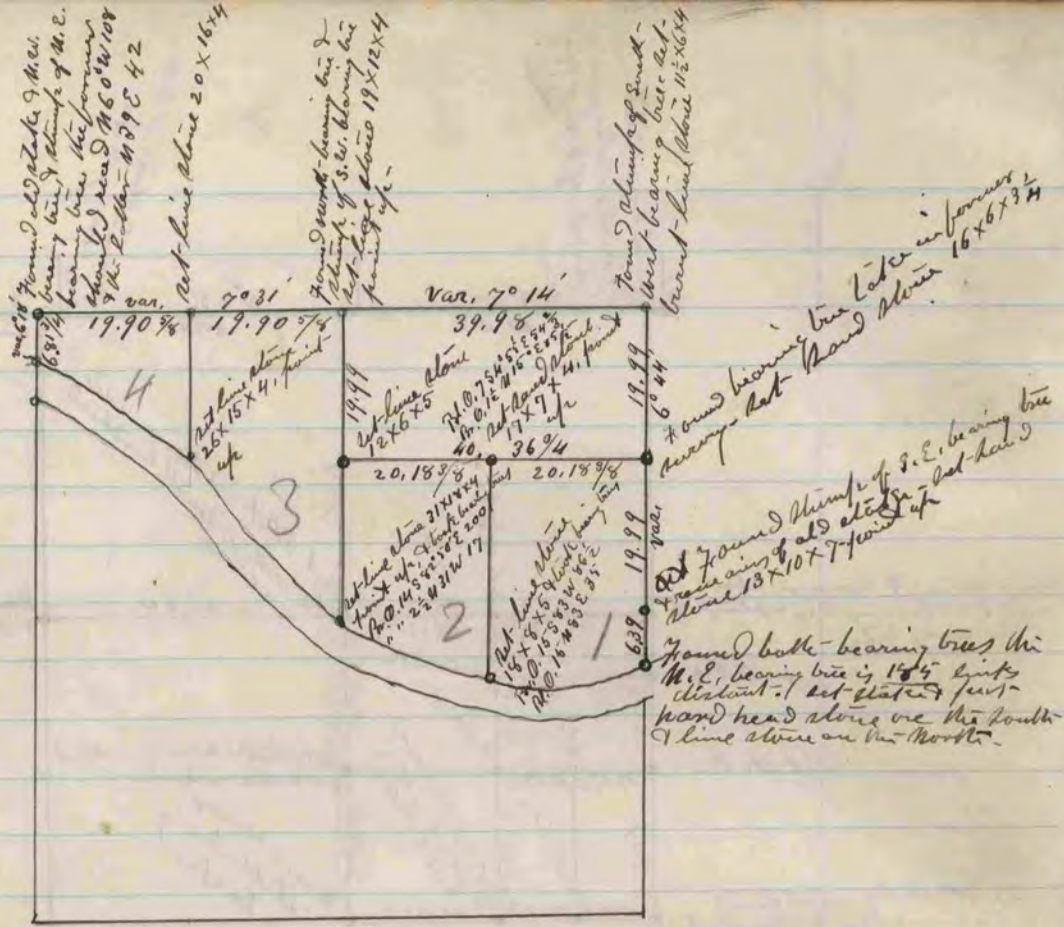 Found old stake & N.W.
bearing tree & stump of N.E.
bearing tree the former
should read N60°W108
& the latter N39E 42
set lime stone 20x16x4
Found north bearing tree &
stump of S.W. bearing tree
set lime stone 19x12x4
point up
Found stump of South
West bearing tree set
burnt lime stone 11½x6x4
var. 6°18'
6.81¾
var. 7°31'
19.90 5/8
19.90 5/8
Var. 7°14'
39.98
4
set lime stone
26x15x4, point
up
19.99
set lime stone
12x6x5
set sand stone
17x7x4, point
up
19.99
6°44'
Found bearing tree taken in former
survey set sand stone 16x6x3½
40, 36¾
20,18 3/8
20,18 3/8
3
set lime stone 31x18x4
point up, & took bearing trees
B.O. 14 S82°50'E 200
" " 2½ N31W 17
2
set lime stone
18x8x5 & took bearing trees
B.O. 15 S83W 86½
B.O. 15 N83E 35½
1
19.99
var.
6.39
Found stump of S.E. bearing tree
& remains of old stake set sand
stone 13x10x7 point up
Found both bearing trees the
N.E. bearing tree is 185 links
distant. set stake & put
hard head stone on the south
& lime stone on the North.